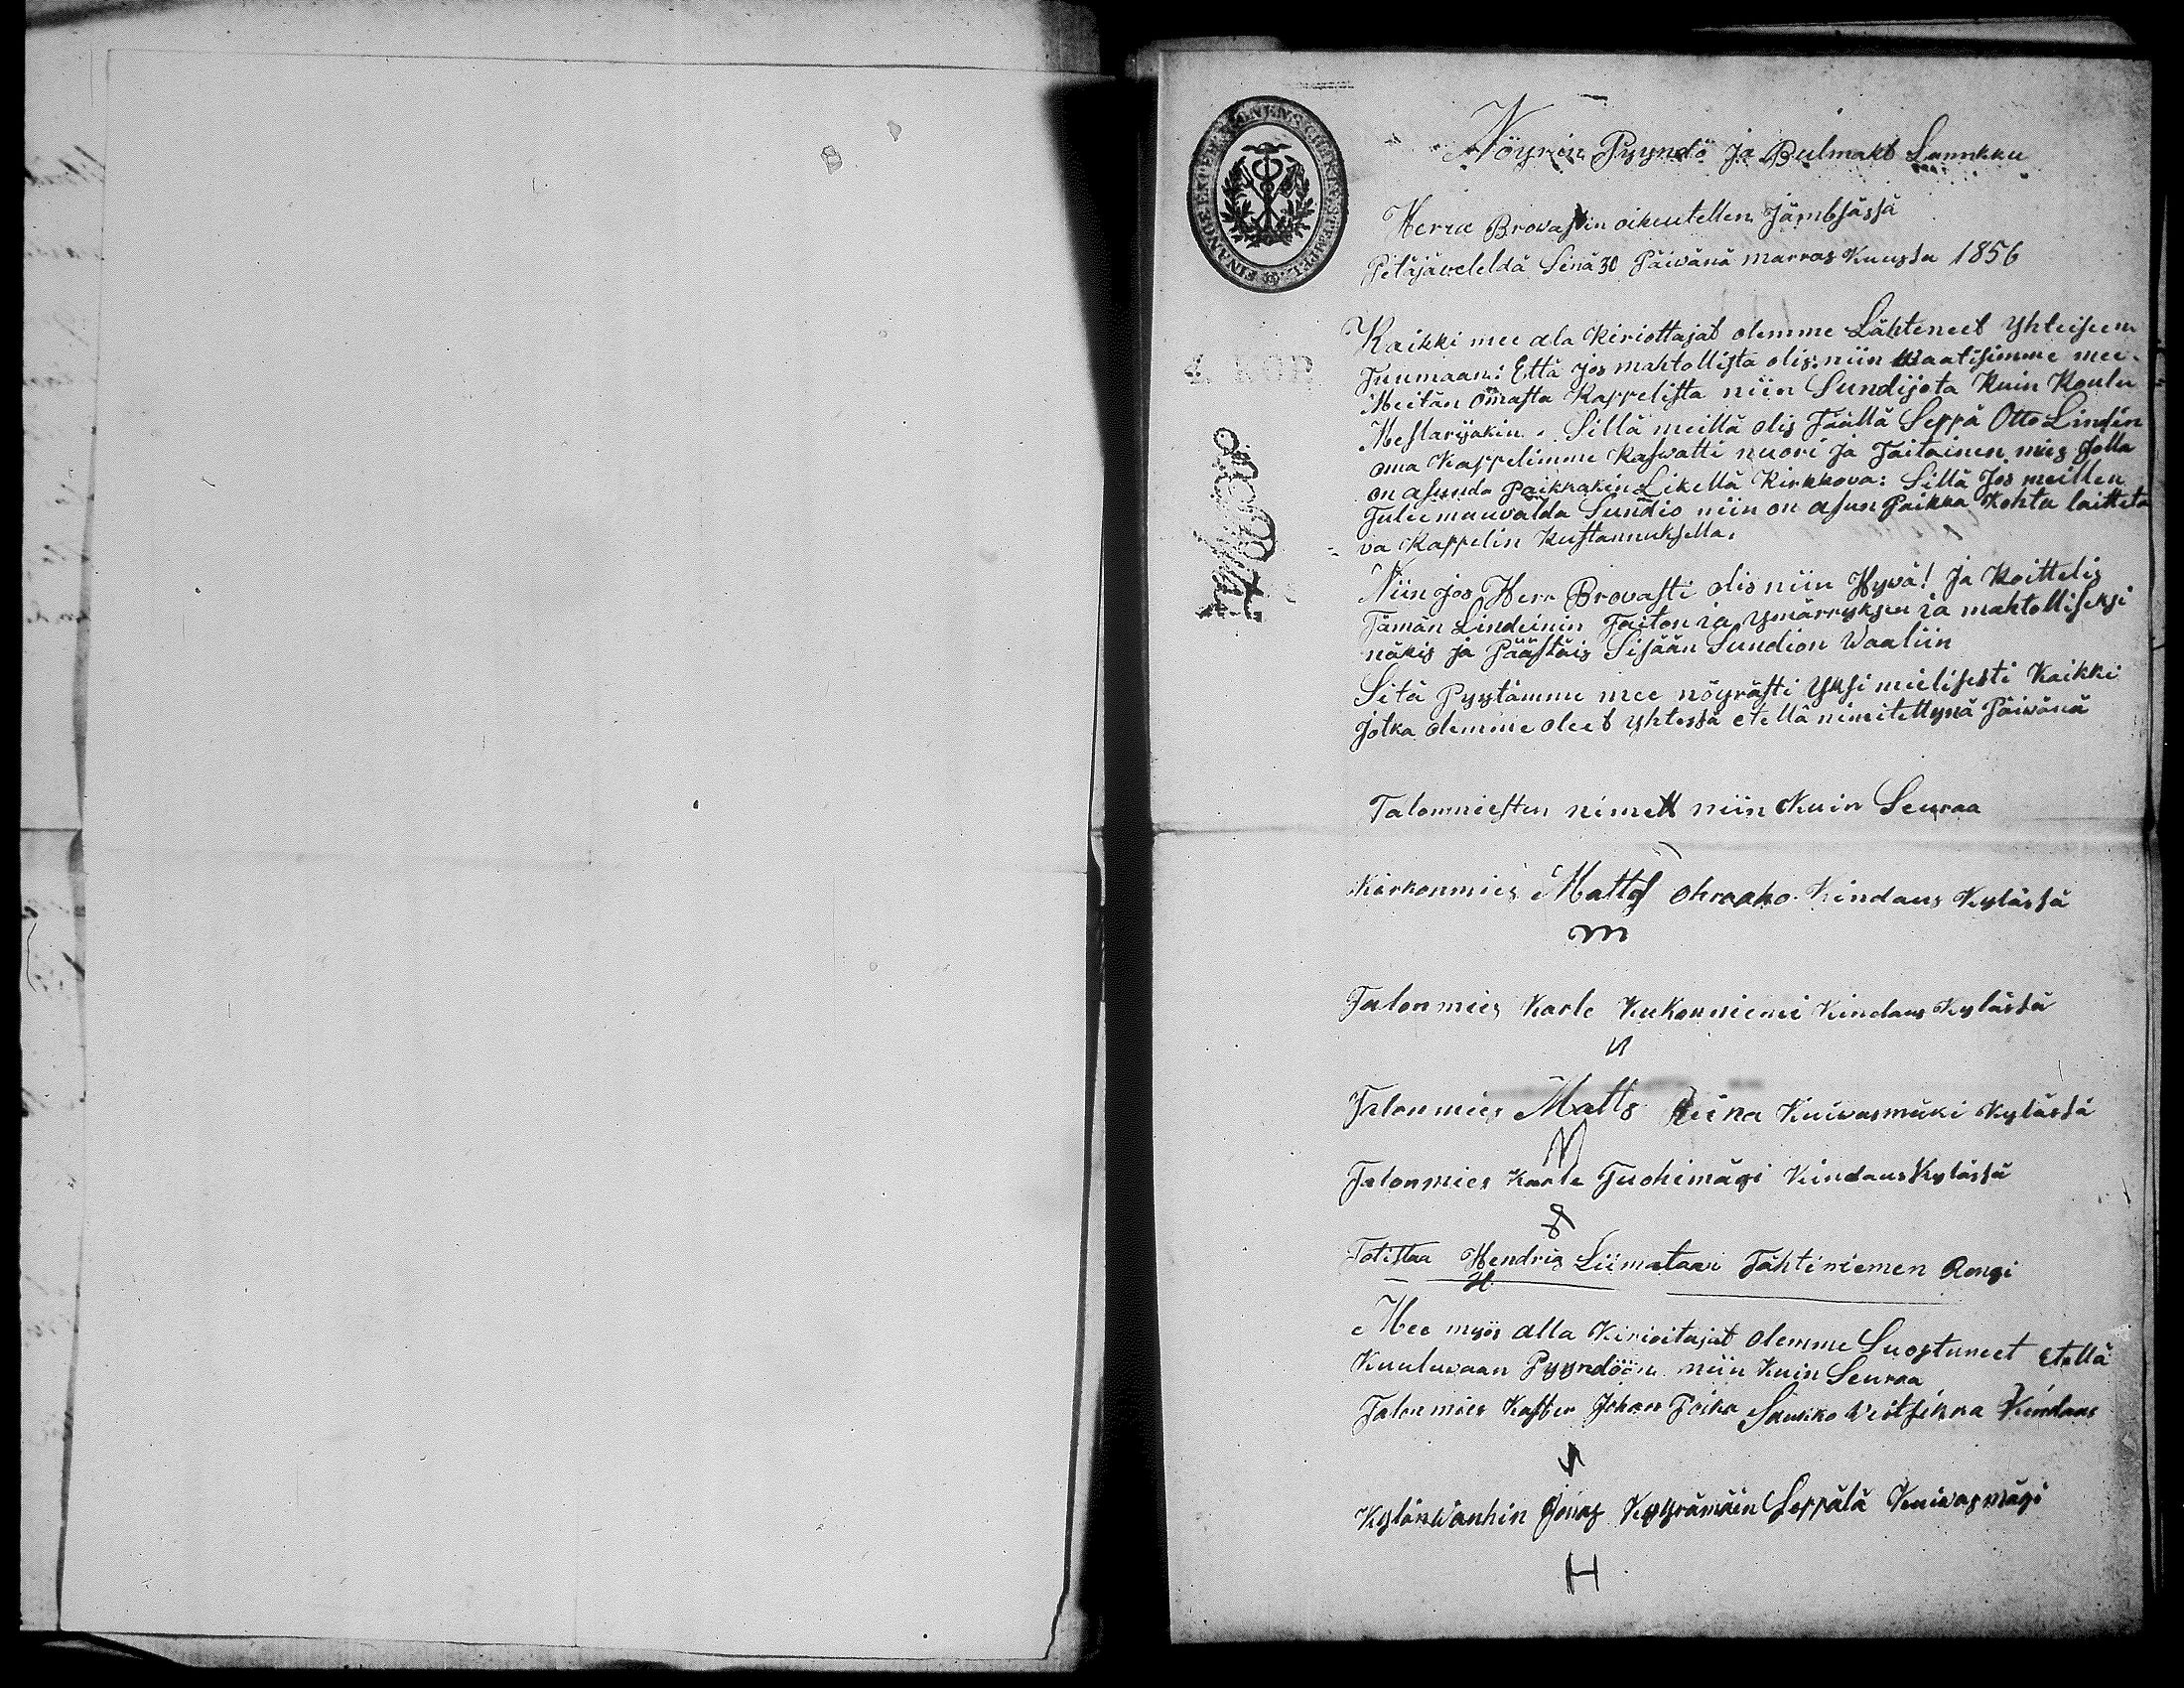 Nöyrin Pyyndö Ja Bulmakt Lunnkku
Herra Browastin oikeutellen Jämbsässä
Pitäjäveleldä Sinä 30 Päiwänä marras Kuussa 1856
4 KOP.
Kaikki mee ala Kiriottajat olemme Lähteneet Yhteiseen
Tuumaan: Että jos mahtollista olis: niin Waatisimme mee
Meitän omasta Kappelista niin Sundijota Kuin Koulu
Mestarijakin. Sillä meillä olis Täällä Seppä Otto Lindin
oma Kappelimme Kaswatti nuori Ja Taitainen mies Jolla
on asunda Paikkakin Likellä Kirkkova: Sillä Jos meillen
Tulee muuvalda Sundio niin on asun Paikka Kohta laitteta
va Kappelin Kustannuksella.
Niin jos Herr Browasti olis niin Hywä! Ja Koittelis
Tämän Lindeinin Taiton ja Ymärryksen ja mahtolliseksi
näkis ja Päästäis Sisään Sundion Waaliin
Sitä Pyytämme mee nöyrästi Yksi mielisesti Kaikki
Jotka olemme oleet Yhtessä etellä nimitettynä Päiwänä
Talonmiesten nimett niin Kuin Seuraa
Kirkonmies Matts Ohraaho Kindaus Kylässä
m
Talonmies Karle Kukonniemi Kindaus Kylässä
Talonmies Matts Leina Kuiwasmäki Kylässä
Talonmies Karle Tuohimägi Kindaus Kylässä
Totistaa Hendrig Liimatain Tähtiniemen Rengi
H
Mee myös alla Kirioitajat olemme Suostuneet etellä
Kuuluwaan Pyyndöön niin Kuin Seuraa
Talonmies Kasber Johan Poika Saukko Kindaus
Kylänwanhin Jonas Seppälä Kuiwasmägi
H